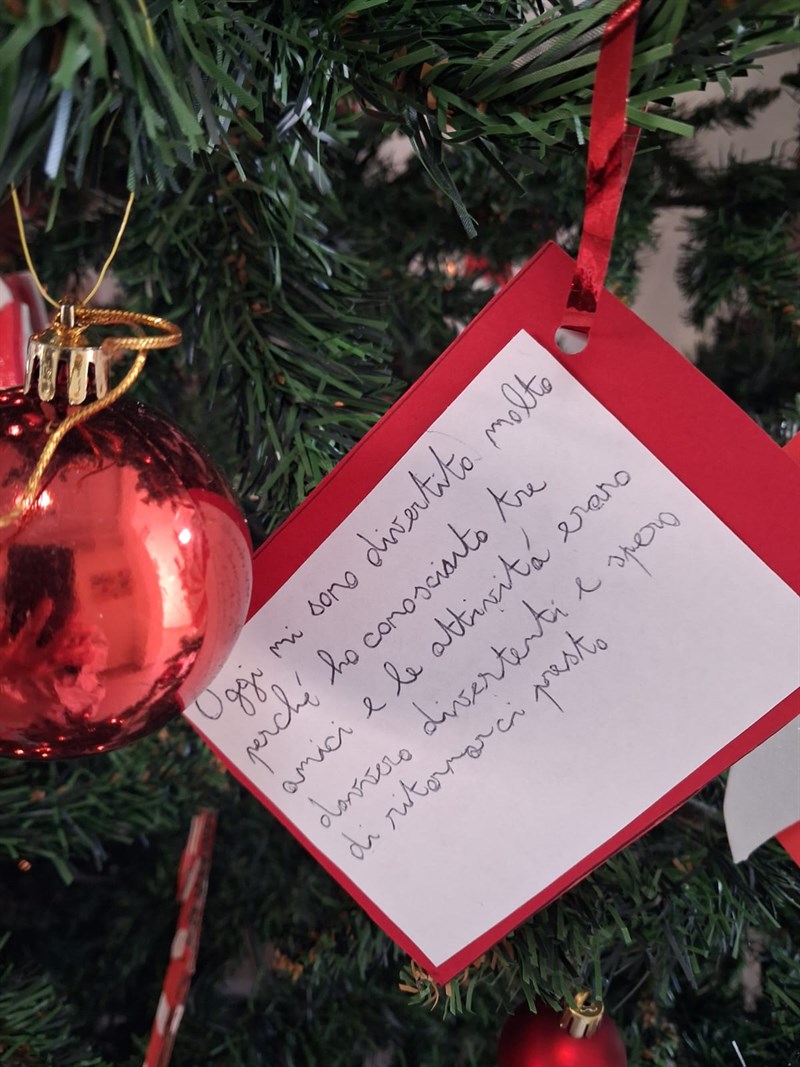 Oggi mi sono divertito molto
perché ho conosciuto tre
amici e le attivitá erano
davvero divertenti e spero
di ritornarci presto